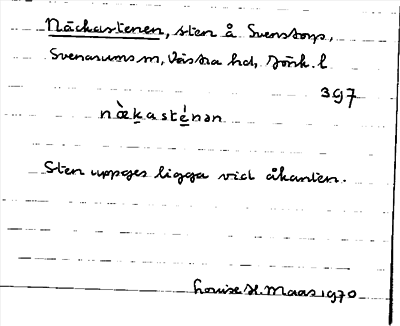 Näckastenen, sten å Svenstorp,
Svenarums sn, Västra hd, Jönk. l
397
nækasténən
Sten uppges ligga vid åkanten.
Louise H. Maas 1970